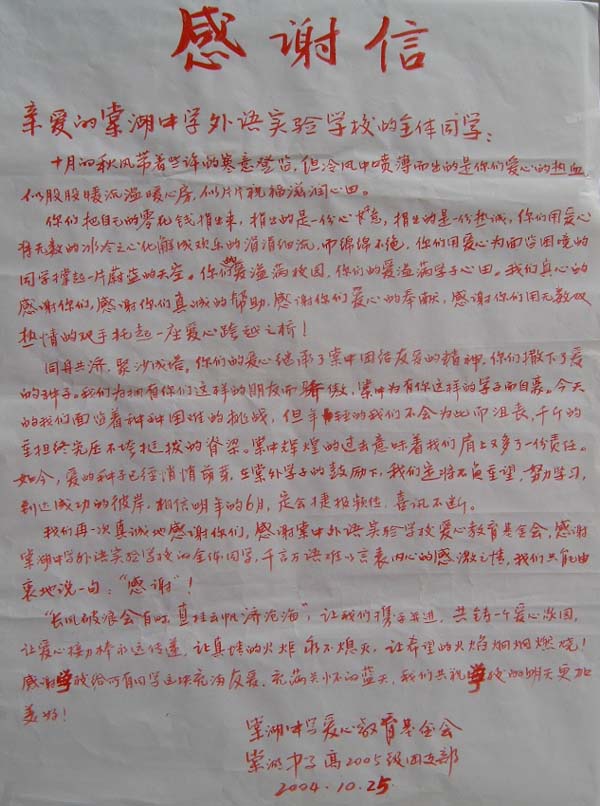 感谢信
亲爱的棠湖中学外语实验学校的全体同学：
十月的秋风带着些许的寒意登临，但冷风中喷薄而出的是你们爱心的热血，
似股股暖流溢暖心房，似片片祝福滋润心田。
你们把自己的零花钱捐出来，捐出的是一份心意，捐出的是一份热诚，你们用爱心
将无数的冰冷之心化解成欢乐的涓涓细流，而绵绵不绝，你们用爱心为面临困境的
同学撑起一片蔚蓝的天空。你们的爱溢满校园，你们的爱溢满学子心田。我们真心的
感谢你们，感谢你们真诚的帮助，感谢你们爱心的奉献，感谢你们用无数双
热情的双手托起一座爱心跨越之桥！
同舟共济，聚沙成塔。你们的爱心继承了棠中团结友爱的精神，你们撒下了爱
的种子。我们为拥有你们这样的朋友而骄傲，棠中为有你这样的学子而自豪。今天
的我们面临着种种困难的挑战，但年轻的我们不会为此而沮丧，千斤的
重担终究压不垮挺拔的脊梁。棠中辉煌的过去意味着我们肩上又多了一份责任。
如今，爱的种子已经悄悄萌芽，在棠外学子的鼓励下，我们定将不负重望，努力学习，
到达成功的彼岸，相信明年的6月，定会捷报频传，喜讯不断。
我们再一次真诚地感谢你们，感谢棠中外语实验学校爱心教育基金会，感谢
棠湖中学外语实验学校的全体同学，千言万语难以言表内心的感激之情，我们只能由
衷地说一句：“感谢”！
“长风破浪会有时，直挂云帆济沧海”，让我们携手共进，共铸一个爱心家园，
让爱心接力棒永远传递，让真情的火炬永不熄灭，让希望的火焰炯炯燃烧！
感谢学校给所有同学这块充满友爱、充满关怀的蓝天，我们共祝学校的明天更加
美好！
棠湖中学爱心教育基金会
棠湖中学高2005级团支部
2004.10.25